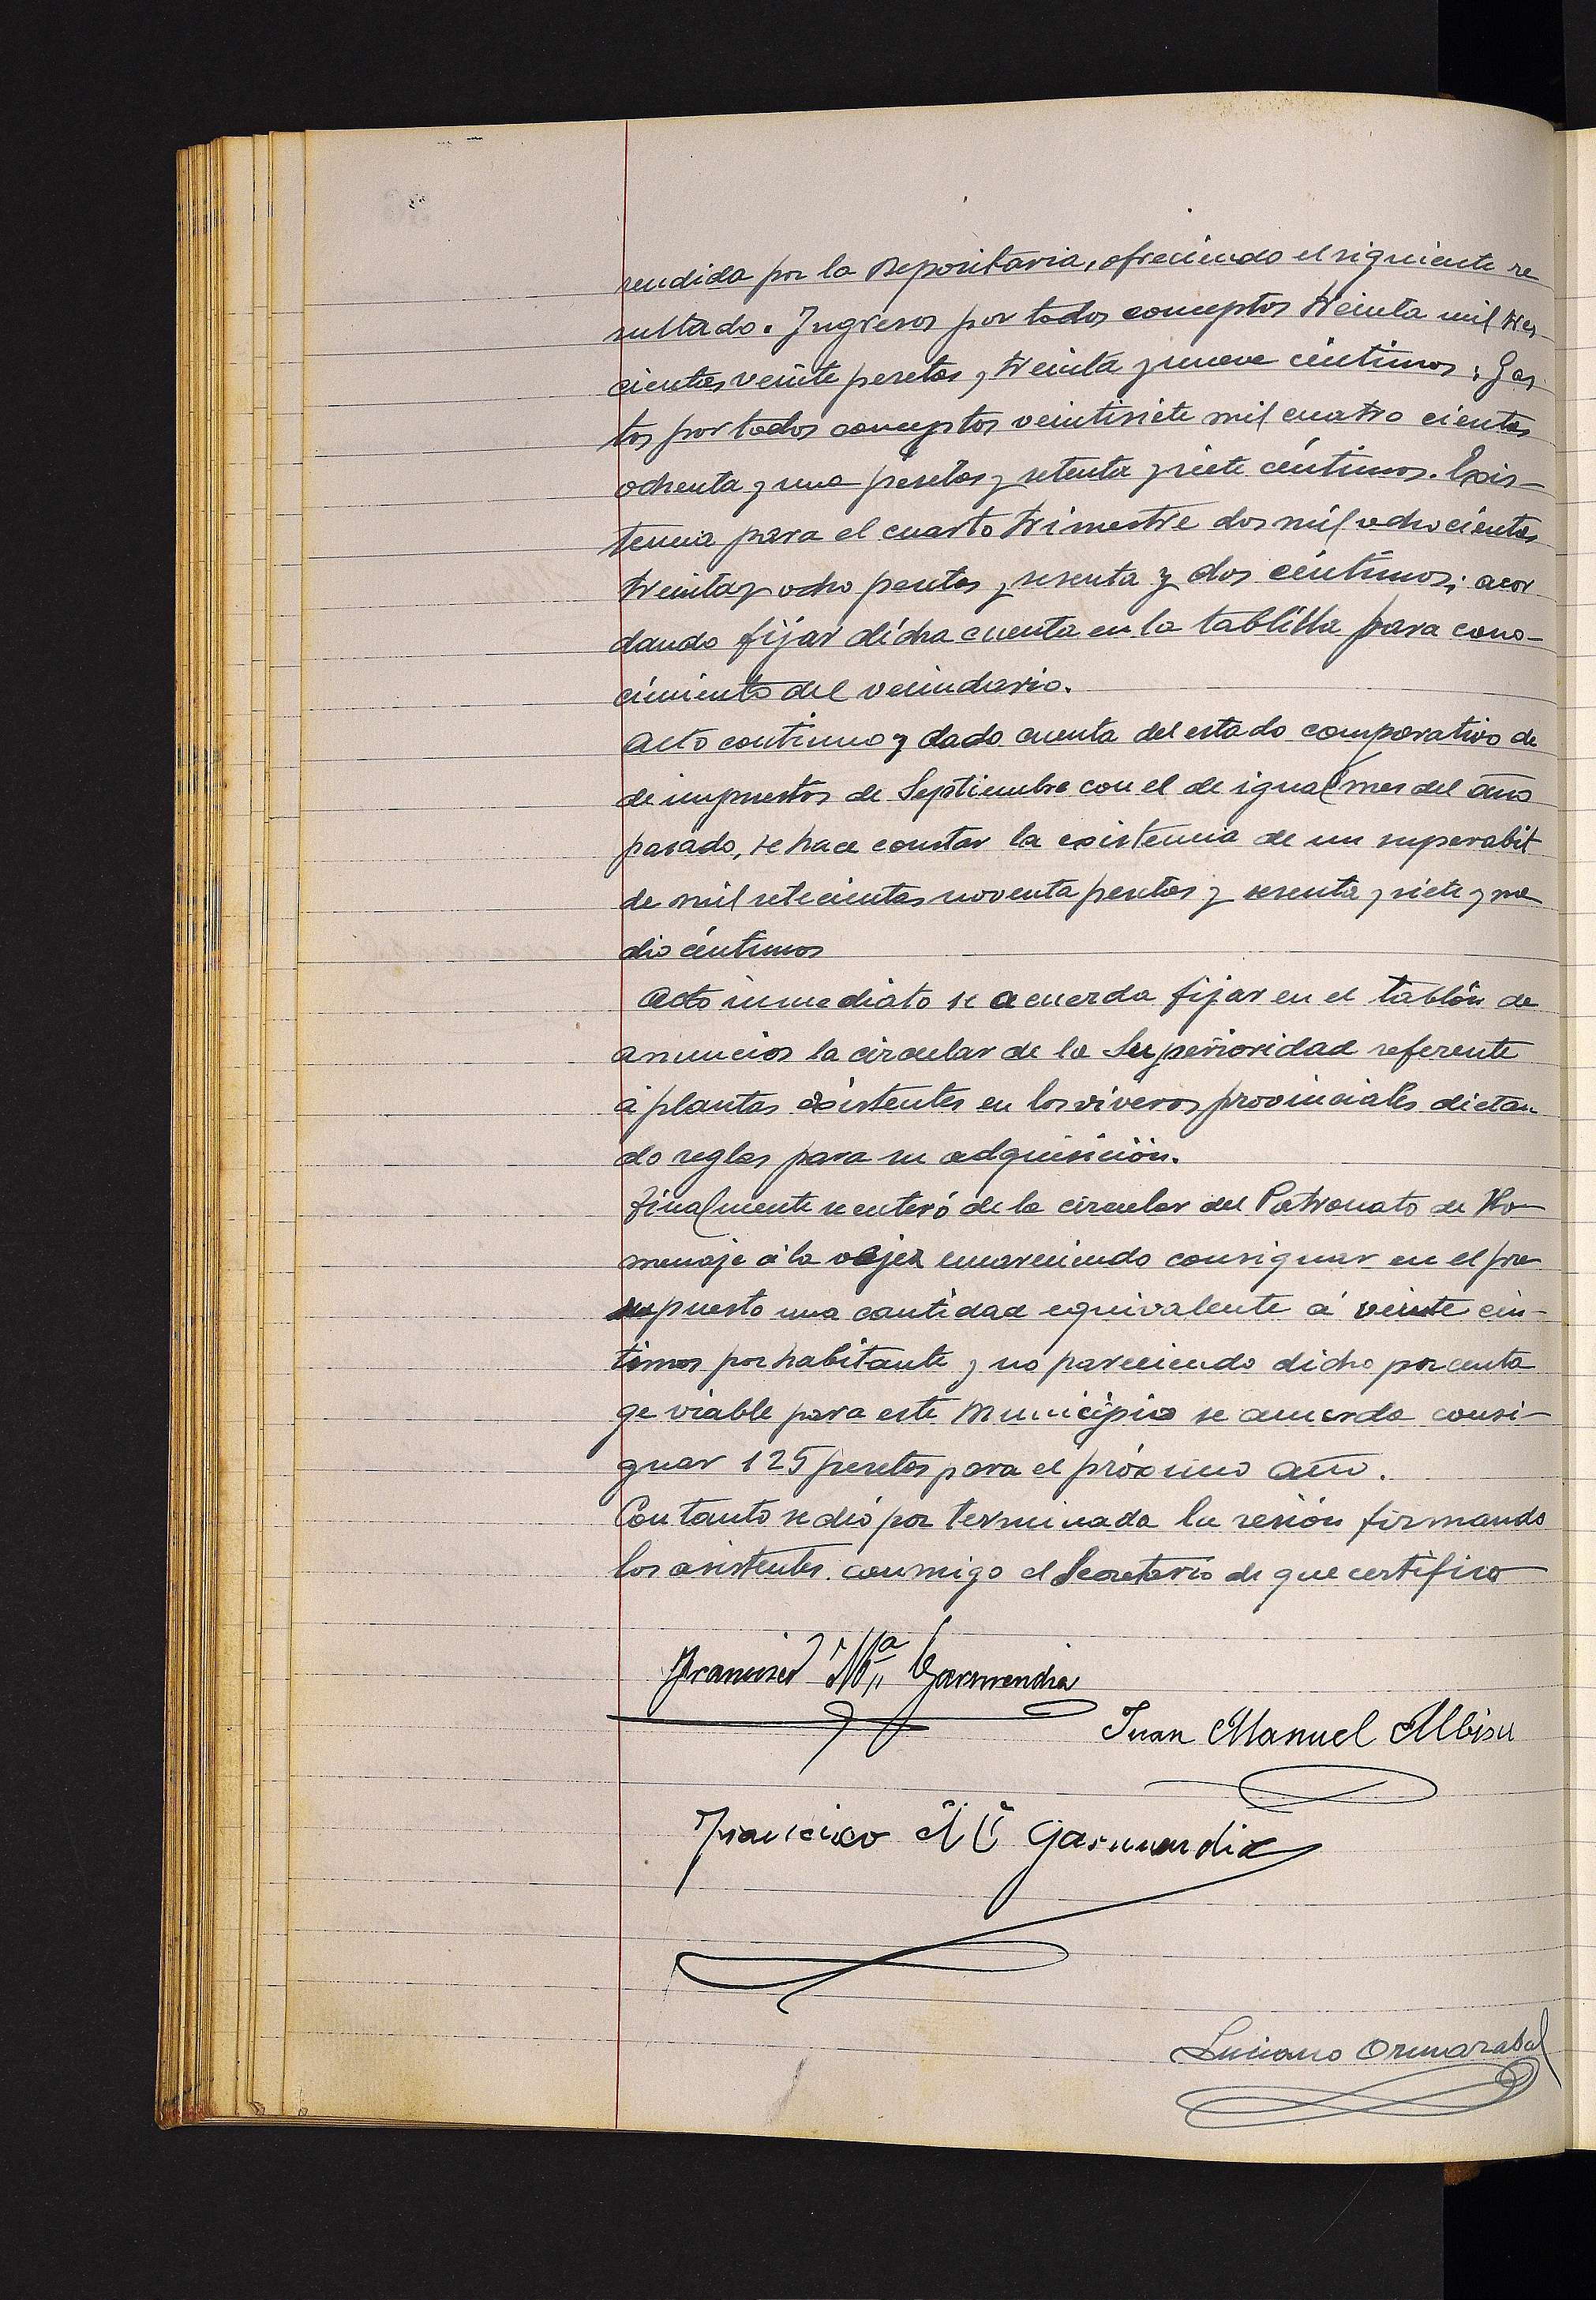 rendida por la Depositaria, ofreciendo el siguiente re
sultado. Ingresos por todos conceptos treinta mil tres
cientas veinte pesetas y treinta y nueve céntimos; Gas
tos por todos conceptos veintisiete mil cuatro cientas
ochenta y una pesetas y setenta y siete céntimos. Exis-
tencia para el cuarto trimestre dos mil ochocientas
treinta y ocho pesetas y sesenta y dos céntimos; acor
dando fijar dicha cuenta en la tablilla para cono-
cimiento del vecindario.
Acto continuo y dado cuenta del estado comparativo de
de impuestos de Septiembre con el de igual mes del año
pasado, se hace constar la existencia de un superabit
de mil setecientas noventa pesetas y sesenta y siete y me
dio céntimos
Acto inmediato se acuerda fijar en el tablón de
anuncios la circular de la Superioridad referente
á plantas existentes en los viveros provinciales dictan
do reglas para su adquisición.
Finalmente se enteró de la circular del Patronato de Ho-
menaje á la vejez encareciendo consignar en el pre
supuesto una cantidad equivalente á veinte cén-
timos por habitante y no pareciendo dicho porcenta
ge viable para este Municipio se acuerda consi-
gnar 125 pesetas para el próximo año.
Con tanto se dió por terminada la sesión firmando
los asistentes conmigo el Secretario de que certifico
Francisco Mª Garmendia
Juan Manuel Albisu
Francisco Mª Garmendia
Luciano Ormazabal